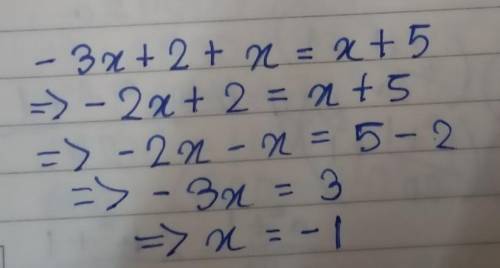 - 3x + 2 + x = x + 5
=> - 2x + 2 = x + 5
=> - 2x - x = 5 - 2
=> - 3x = 3
=> x = - 1